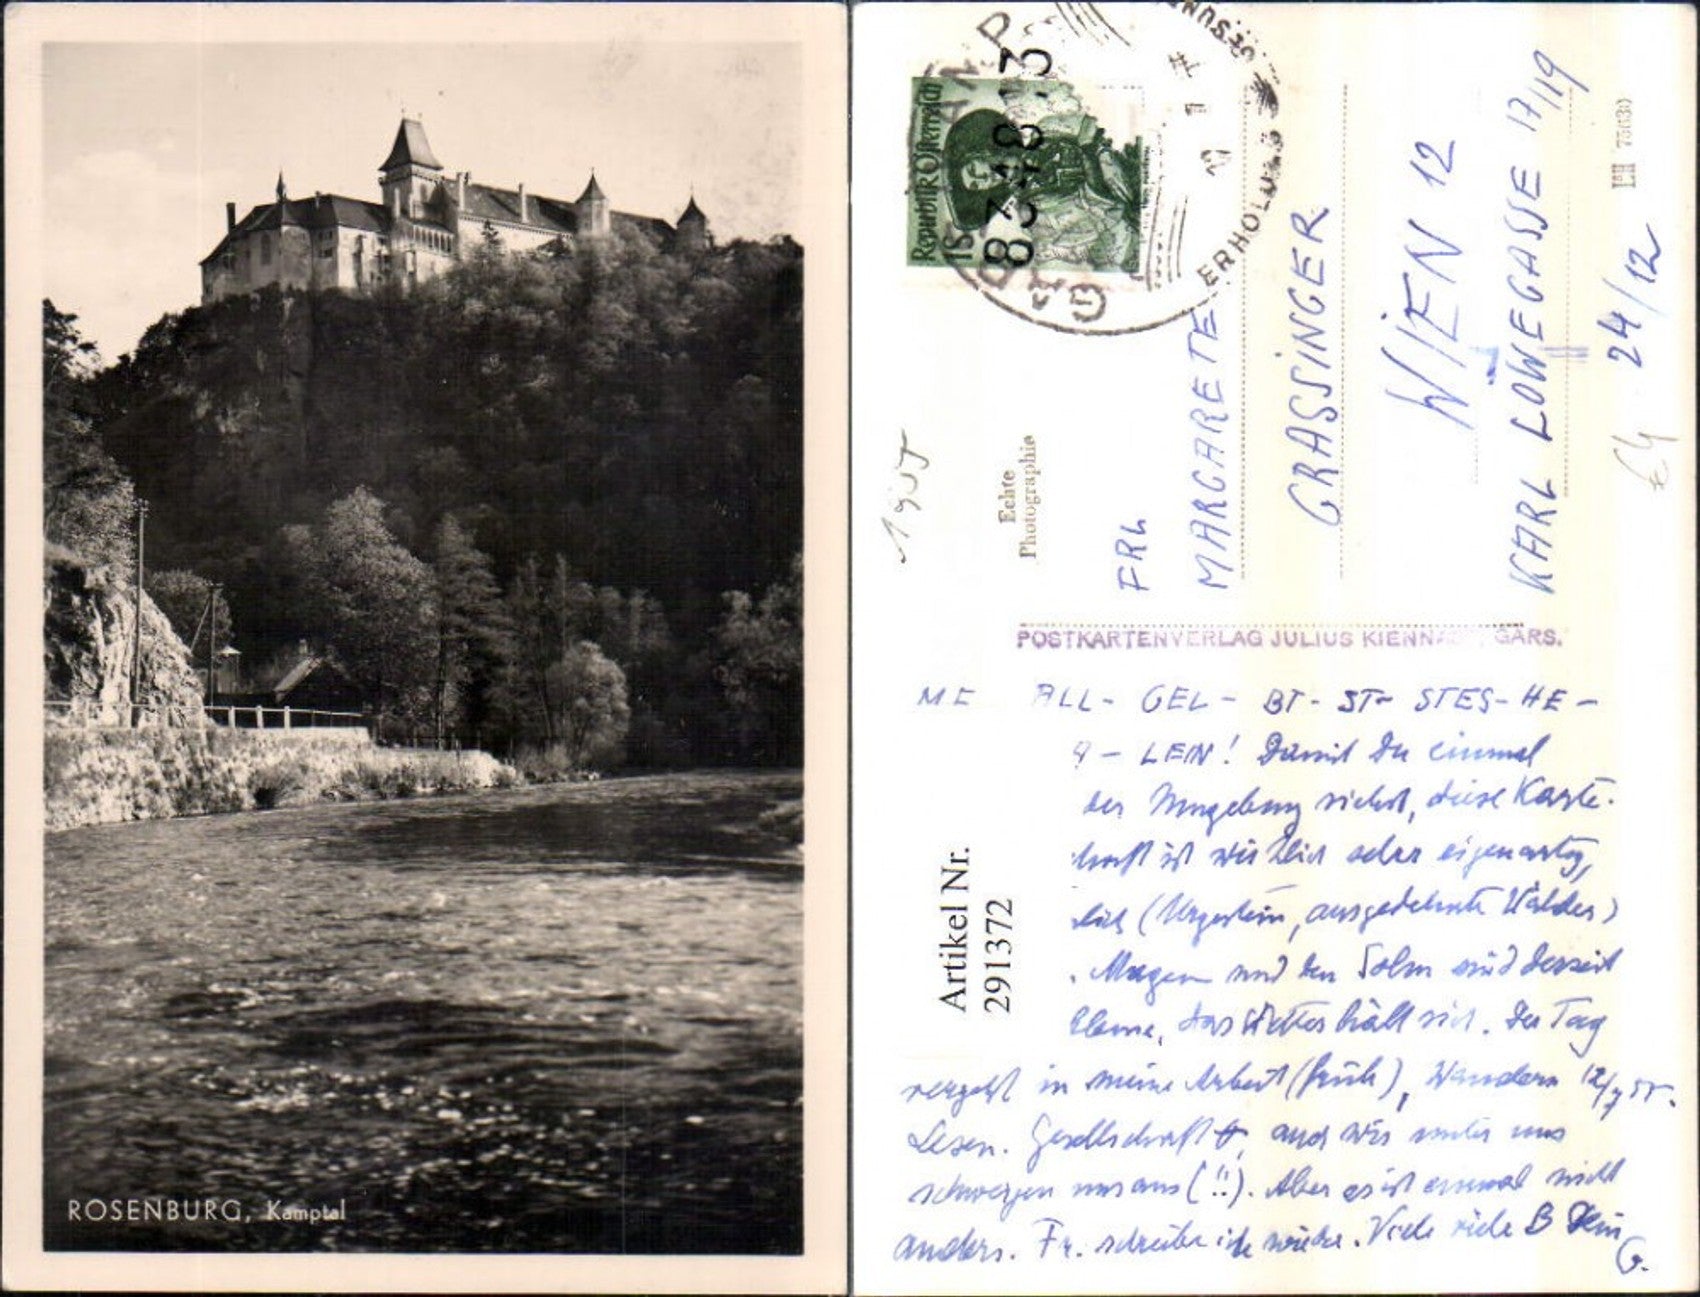 ROSENBURG, Kamptal
Republik Österreich
1 S
83 48 13
ERHOLUNG
1955
Echte
Photographie
FRL
MARGARETE
GRASSINGER
WIEN 12
KARL LÖWEGASSE 17/19
24/12
LH 75630
POSTKARTENVERLAG JULIUS KIENNAST, GARS.
Artikel Nr.
291372
ME ALL- GEL- BT- ST- STES- HE-
- LEIN! Damit Du einmal
der Umgebung siehst, diese Karte.
ist wirklich sehr eigenartig,
(Urgestein, ausgedehnte Wälder)
Magen und den Darm sind derzeit
das Wetter hält sich. Der Tag
vergeht in meine Arbeit (früh), Wandern 12/7 55.
Lesen. Gesellschaft auch wir unter uns
schweigen uns aus (!!). Aber es ist einmal nicht
anders. Fr. schreibe ich wieder. Viele viele B Dein
G.